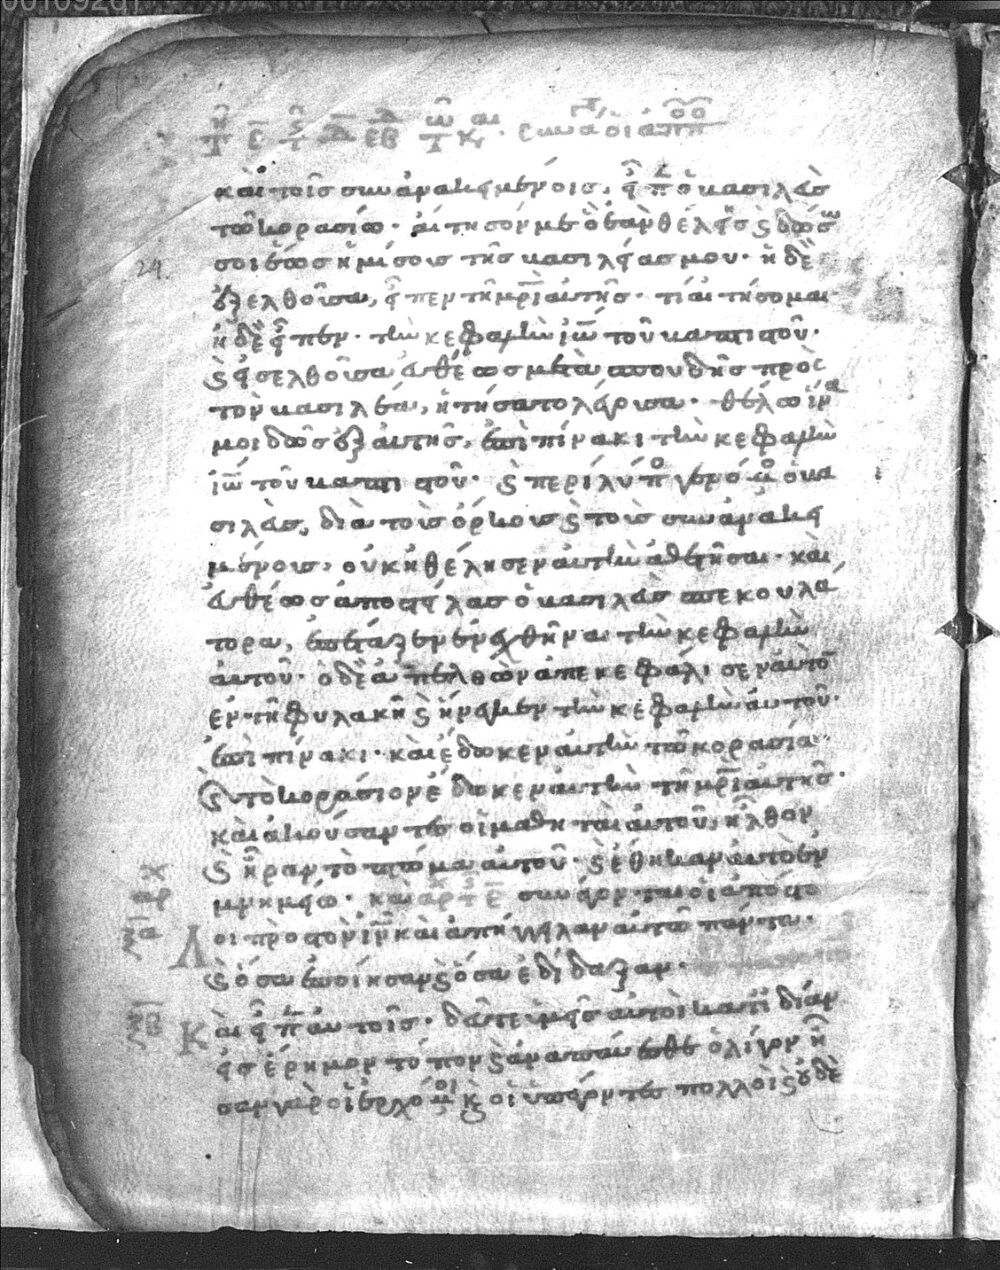 καὶ τοῖς συνανακειμένοις, εἶπεν ὁ βασιλεὺς
τῶ κορασίω· αἴτησόν με ὃ ἐὰν θέλεις ϗ δώσω
σοι ἕως ἡμίσους τῆς βασιλείας μου· ἡ δὲ
24.
ἐξελθοῦσα, εἶπεν τῆ μρὶ αὐτῆς· τί αἰτήσομαι
ἡ δὲ εἶπεν· τὴν κεφαλὴν ἰω τοῦ βαπτιστοῦ·
ϗ εἰσελθοῦσα εὐθέως μετὰ σπουδῆς πρὸς
τὸν βασιλέα, ἠτήσατο λέγουσα· θέλω ἵνα
μοι δῶς ἐξ αὐτῆς, ἐπὶ πίνακι τὴν κεφαλὴν
ἰω τοῦ βαπτιστοῦ· ϗ περίλυπο γενόμο ὁ βα
σιλεὺς, διὰ τοὺς ὅρκους ϗ τοὺς συνανακει
μένους, οὐκ ἠθέλησεν αὐτὴν ἀθετῆσαι· καὶ
εὐθέως ἀποστείλας ὁ βασιλεὺς σπεκουλά
τορα, ἐπέταξεν ἐνεχθῆναι τὴν κεφαλὴν
αὐτοῦ· ὁ δὲ ἀπελθὼν ἀπεκεφάλισεν αὐτὸ
ἐν τῆ φυλακῆ ϗ ἤνεγκεν τὴν κεφαλὴν αὐτοῦ·
ἐπὶ πίνακι· καὶ ἔδωκεν αὐτὴν τῶ κορασίω·
ϗ τὸ κοράσιον ἔδωκεν αὐτὴν τῆ μρὶ αὐτῆς·
καὶ ἀκούσαντες οἱ μαθηταὶ αὐτοῦ, ἦλθον
ϗ ἦραν τὸ πτῶμα αὐτοῦ· ϗ ἔθηκαν αὐτὸ ἐν
μνημείω· καὶ συνάγονται οἱ ἀπόστο
λοι πρὸς τὸν ἰν καὶ ἀπήγγειλαν αὐτῶ πάντα·
ϗ ὅσα ἐποίησαν ϗ ὅσα ἐδίδαξαν·
Καὶ εἶπεν αὐτοῖς· δεῦτε ὑμεῖς αὐτοὶ κατ ἰδίαν
εἰς ἔρημον τόπον ϗ ἀναπαύεσθε ὀλίγον ἦ
σαν γὰρ οἱ ἐρχόμοι ϗ οἱ ὑπάγοντες πολλοὶ ϗ οὐδὲ